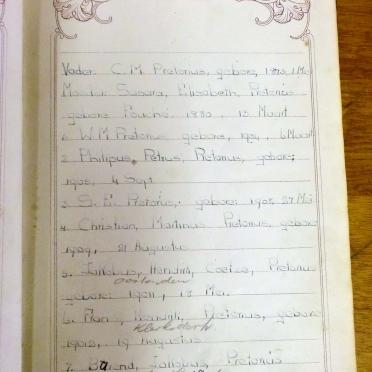 Vader. C. M. Pretorius, gebore, 1880, 1 Mei
Moeder Susara, Elisabeth, Pretorius
gebore Fouché. 1880. 13 Maart
1. W. M Pretorius, gebore, 1904, 6 Maart
2 Philipus, Petrus, Pretorius, gebore;
1905, 4 Sept
3 S. E. Pretorius, gebore: 1907, 27 Mei
4. Christian, Martinus Pretorius, gebore
1909, 21 Augustus
5. Jakobus, Hendrik, Coetze, Pretorius
oosterden
gebore: 1911, 13 Mei.
6. Hendrik, Pretorius, gebore
Klerksdorp
1912, 19 Augustus
7. Barend, Jakobus, Pretorius